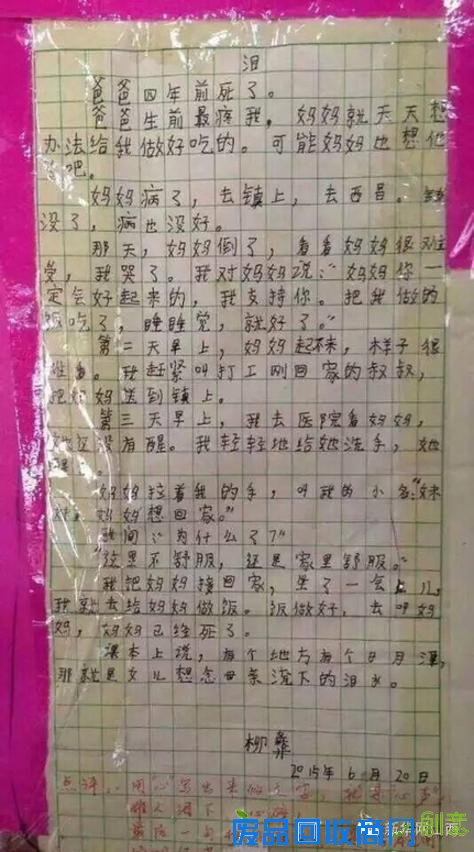 泪
爸爸四年前死了。
爸爸生前最疼我,妈妈就天天想
办法给我做好吃的。可能妈妈也想他
吧。
妈妈病了,去镇上,去西昌。钱
没了,病也没好。
那天,妈妈倒了,看看妈妈很难
受,我哭了。我对妈妈说:“妈妈你一
定会好起来的,我支持你。把我做的
饭吃了,睡睡觉,就好了。”
第二天早上,妈妈起不来,样子很
难看。我赶紧叫打工刚回家的叔叔,
把妈妈送到镇上。
第三天早上,我去医院看妈妈,
她还没有醒。我轻轻地给她洗手,她
妈妈拉着我的手,叫我的小名:“妹
妹,妈妈想回家。”
我问:“为什么了?”
“这里不舒服,还是家里舒服。”
我把妈妈接回家,坐了一会儿,
我就去给妈妈做饭。饭做好,去叫妈
妈,妈妈已经死了。
课本上说,有个地方有个日月潭,
那就是女儿想念母亲流下的泪水。
柳彝
2015年6月20日
点评:用心写出来的文字,
废品回收商网
新华网山西
创幸